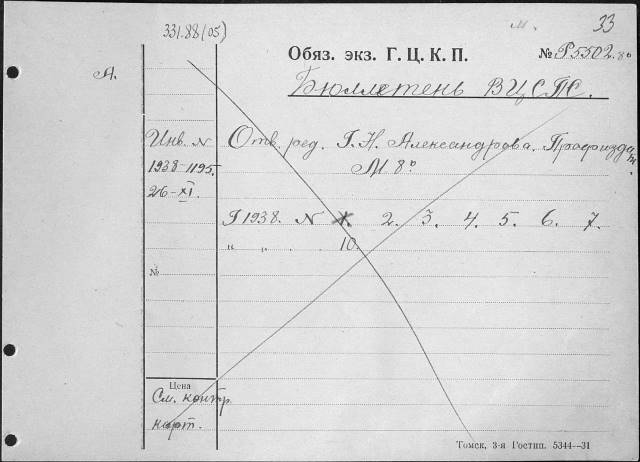 331.88(05)
м.
33
А.
Обяз. экз. Г. Ц. К. П.
№ Р5502. 8°
Бюллетень ВЦСПС.
Инв. N
1938-1195.
26-XI.
Отв. ред. Г. Н. Александрова. Профиздат.
М 8°
Г 1938. N 1. 2. 3. 4. 5. 6. 7.
" " . . 10.
№
Цена
См. контр.
карт.
Томск, 3-я Гостип. 5344—31